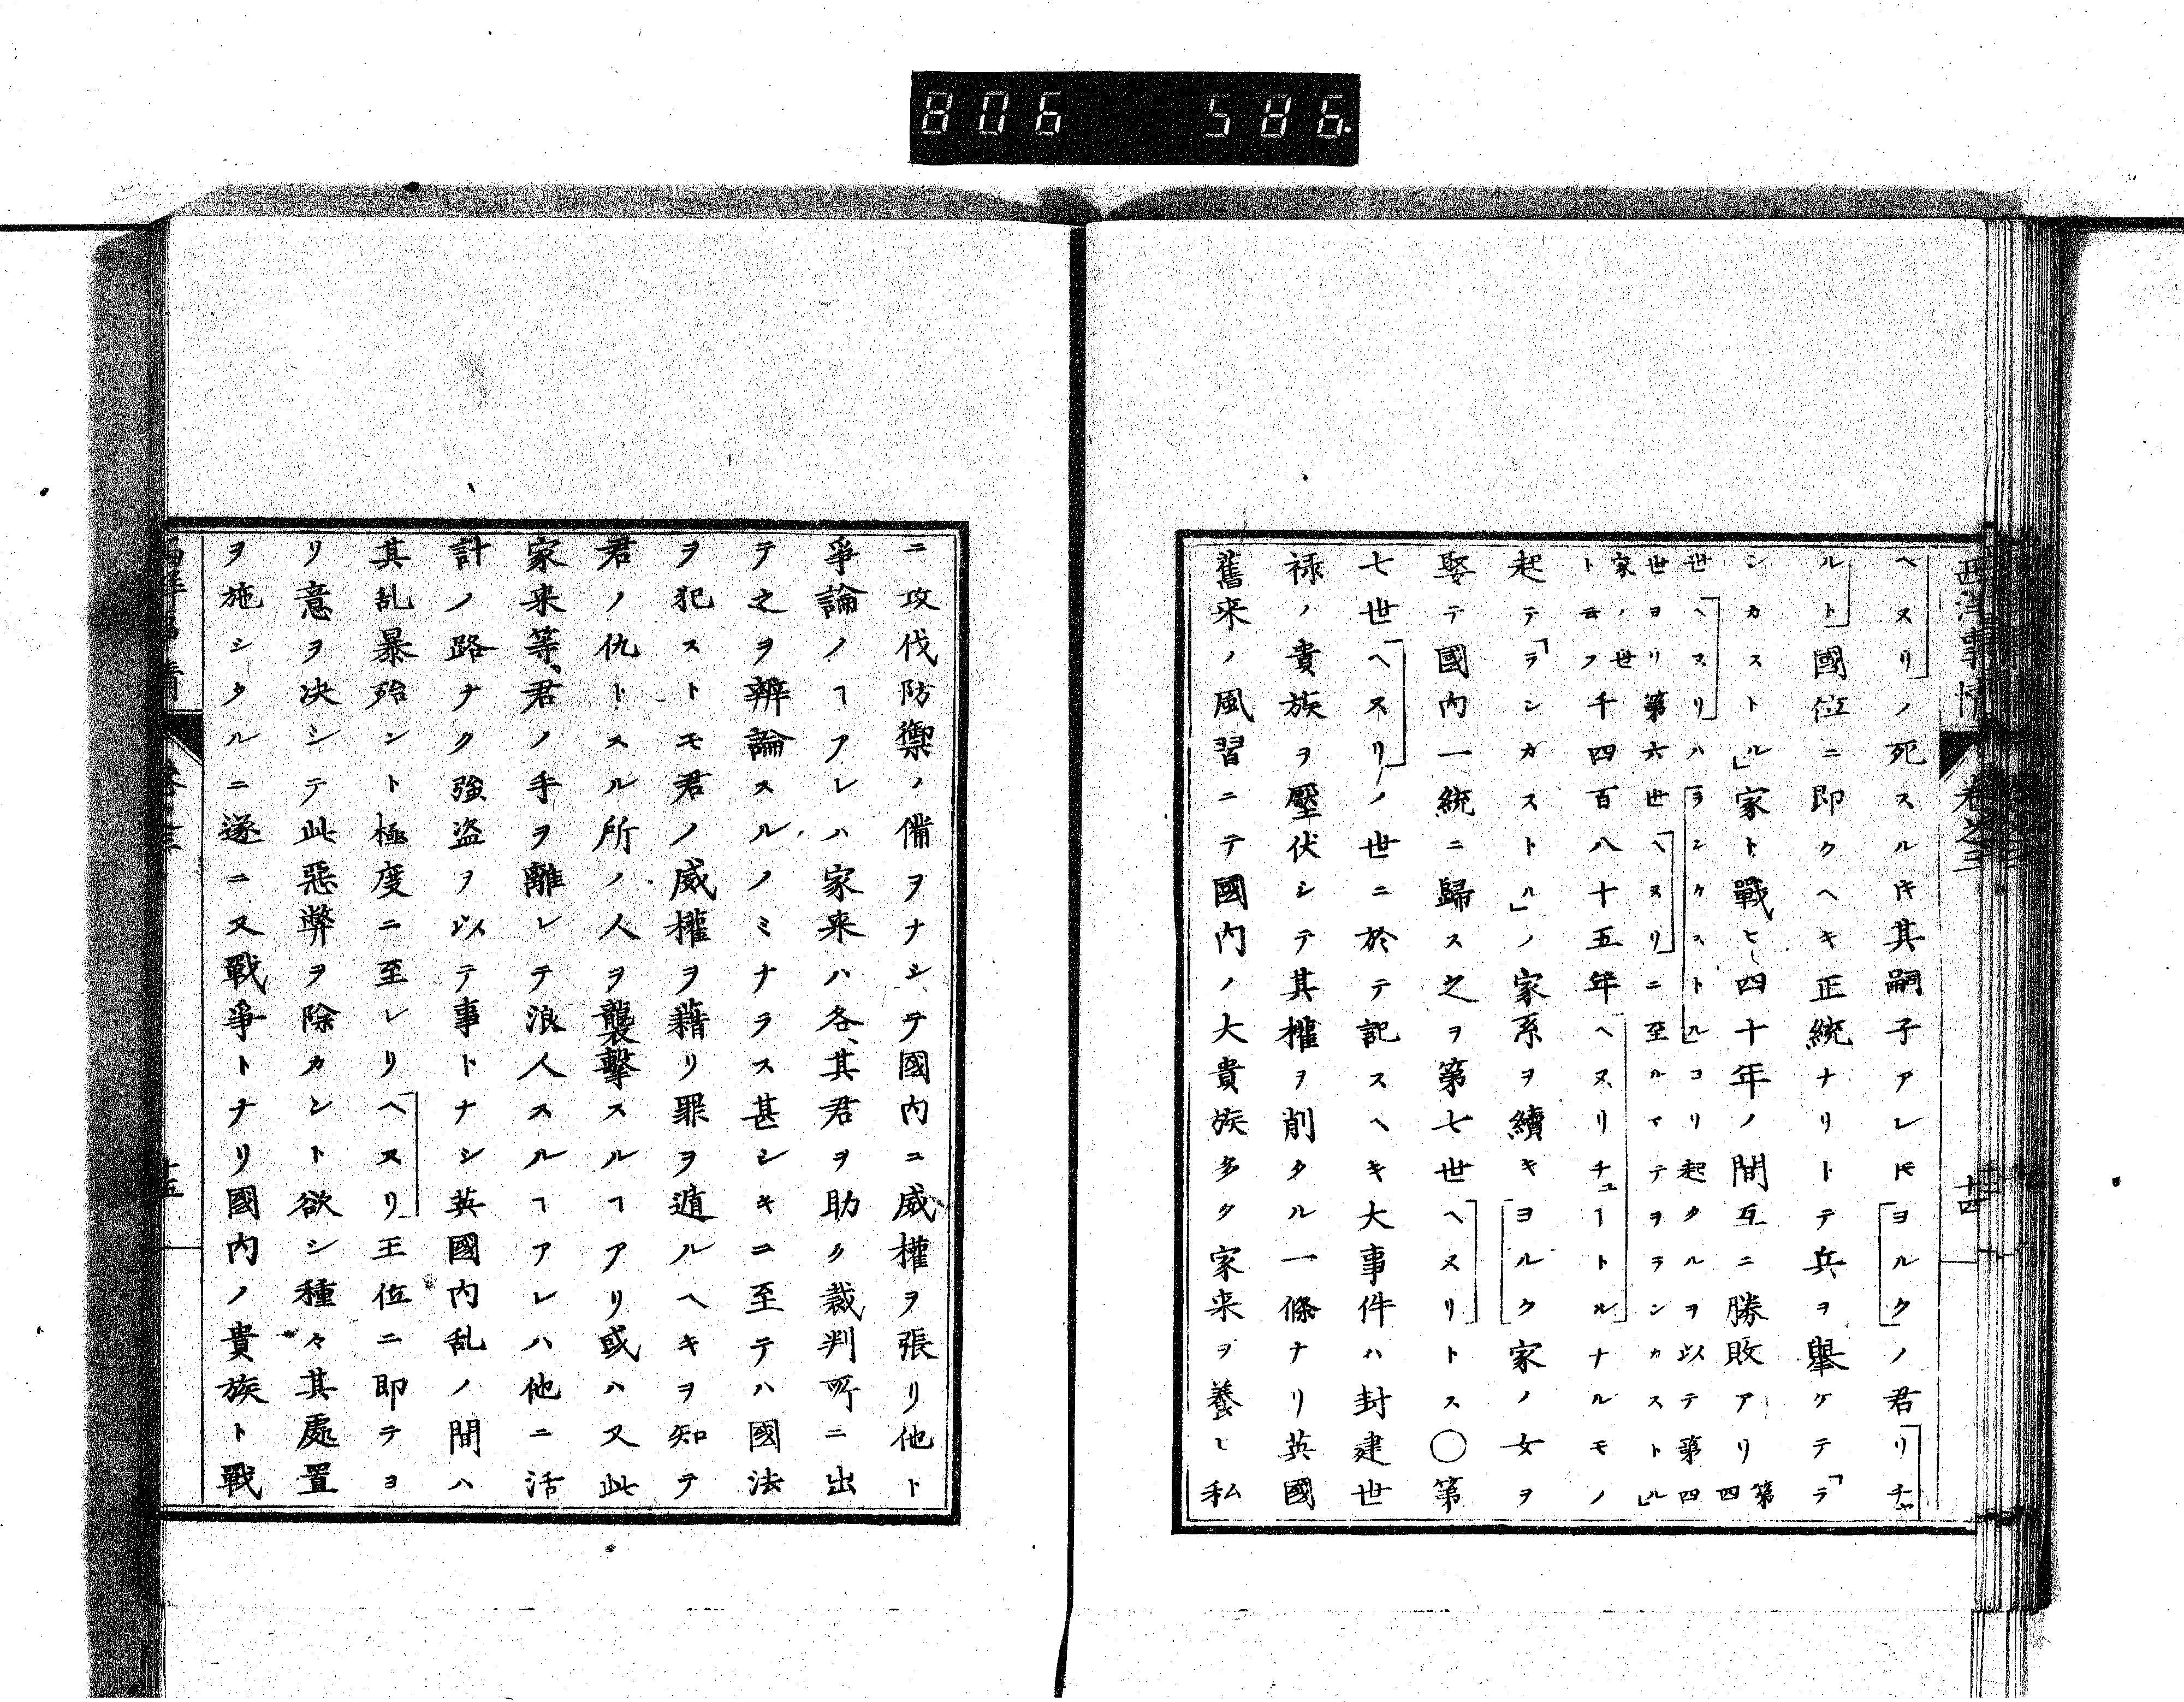 806 586.
西洋事情 卷之三 十四
ヘヌリノ死スルキ其嗣子アレ𪜈ヨルクノ君リチャ
ルト國位ニ即クヘキ正統ナリトテ兵ヲ擧ケテ「ラ
ンカストル」家ト戰ヒ四十年ノ間互ニ勝敗アリ第四
世ヘヌリハランカストルヨリ起タルヲ以テ第四
世ヨリ第六世ヘヌリニ至ルマテヲランカストル」
家ノ世
ト云フ千四百八十五年ヘヌリチュートルナルモノ
起テ「ランカストル」ノ家系ヲ續キヨルク家ノ女ヲ
娶テ國内一統ニ歸ス之ヲ第七世ヘヌリトス○第
七世ヘヌリノ世ニ於テ記スヘキ大事件ハ封建世
禄ノ貴族ヲ壓伏シテ其權ヲ削タル一條ナリ英國
舊来ノ風習ニテ國内ノ大貴族多ク家来ヲ養ヒ私
ニ攻伐防禦ノ備ヲナシテ國内ニ威權ヲ張リ他ト
爭論ノヿアレハ家来ハ各、其君ヲ助ク裁判所ニ出
テ之ヲ辨論スルノミナラス甚シキニ至テハ國法
ヲ犯ストモ君ノ威權ヲ藉リ罪ヲ遁ルヘキヲ知テ
君ノ仇トスル所ノ人ヲ襲擊スルヿアリ或ハ又此
家来等、君ノ手ヲ離レテ浪人スルヿアレハ他ニ活
計ノ路ナク強盗ヲ以テ事トナシ英國内乱ノ間ハ
其乱暴殆ント極度ニ至レリヘヌリ王位ニ即テヨ
リ意ヲ決シテ此惡弊ヲ除カント欲シ種々其處置
ヲ施シタルニ遂ニ又戰爭トナリ國内ノ貴族ト戰